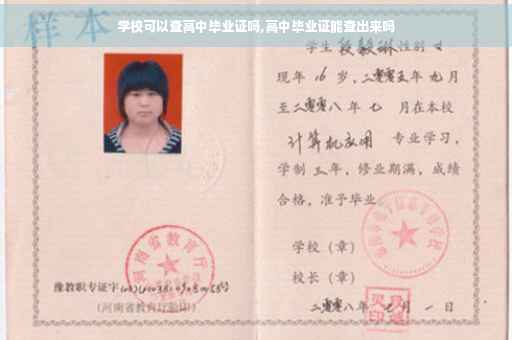 学校可以查高中毕业证吗,高中毕业证能查出来吗
样本
学生段毅琳性别女
现年16岁,二零零五年九月
至二零零八年七月在本校
计算机应用 专业学习,
学制三年,修业期满,成绩
合格,准予毕业
学校(章)
校长(章)
二零零八年七月一日
河南省教育厅
豫教职专证字
(河南省教育厅验印)